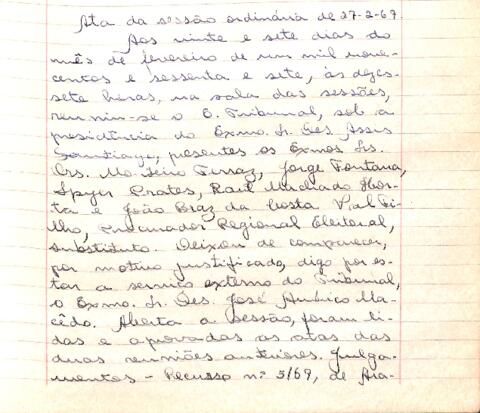 Ata da sessão ordinária de 27-2-67
Aos vinte e sete dias do
mês de fevereiro de um mil nove-
centos e sessenta e sete, às dezes-
sete horas, na sala das sessões,
reuniu-se o E. Tribunal, sob a
presidência do Exmo. Sr. Des. Assis
Santiago, presentes os Exmos Srs.
Drs. Monteiro Ferraz, Jorge Fontana,
Spyer Prates, Raul Machado Hor-
ta e João Braz da Costa Val Fi-
lho, Procurador Regional Eleitoral,
substituto. Deixou de comparecer,
por motivo justificado, digo por es-
tar a serviço externo do Tribunal,
o Exmo. Sr. Des. José Américo Ma-
cêdo. Aberta a sessão, foram li-
das e aprovadas as atas das
duas reuniões anteriores. Julga-
mentos - Recurso nº 5/67, de Ara-